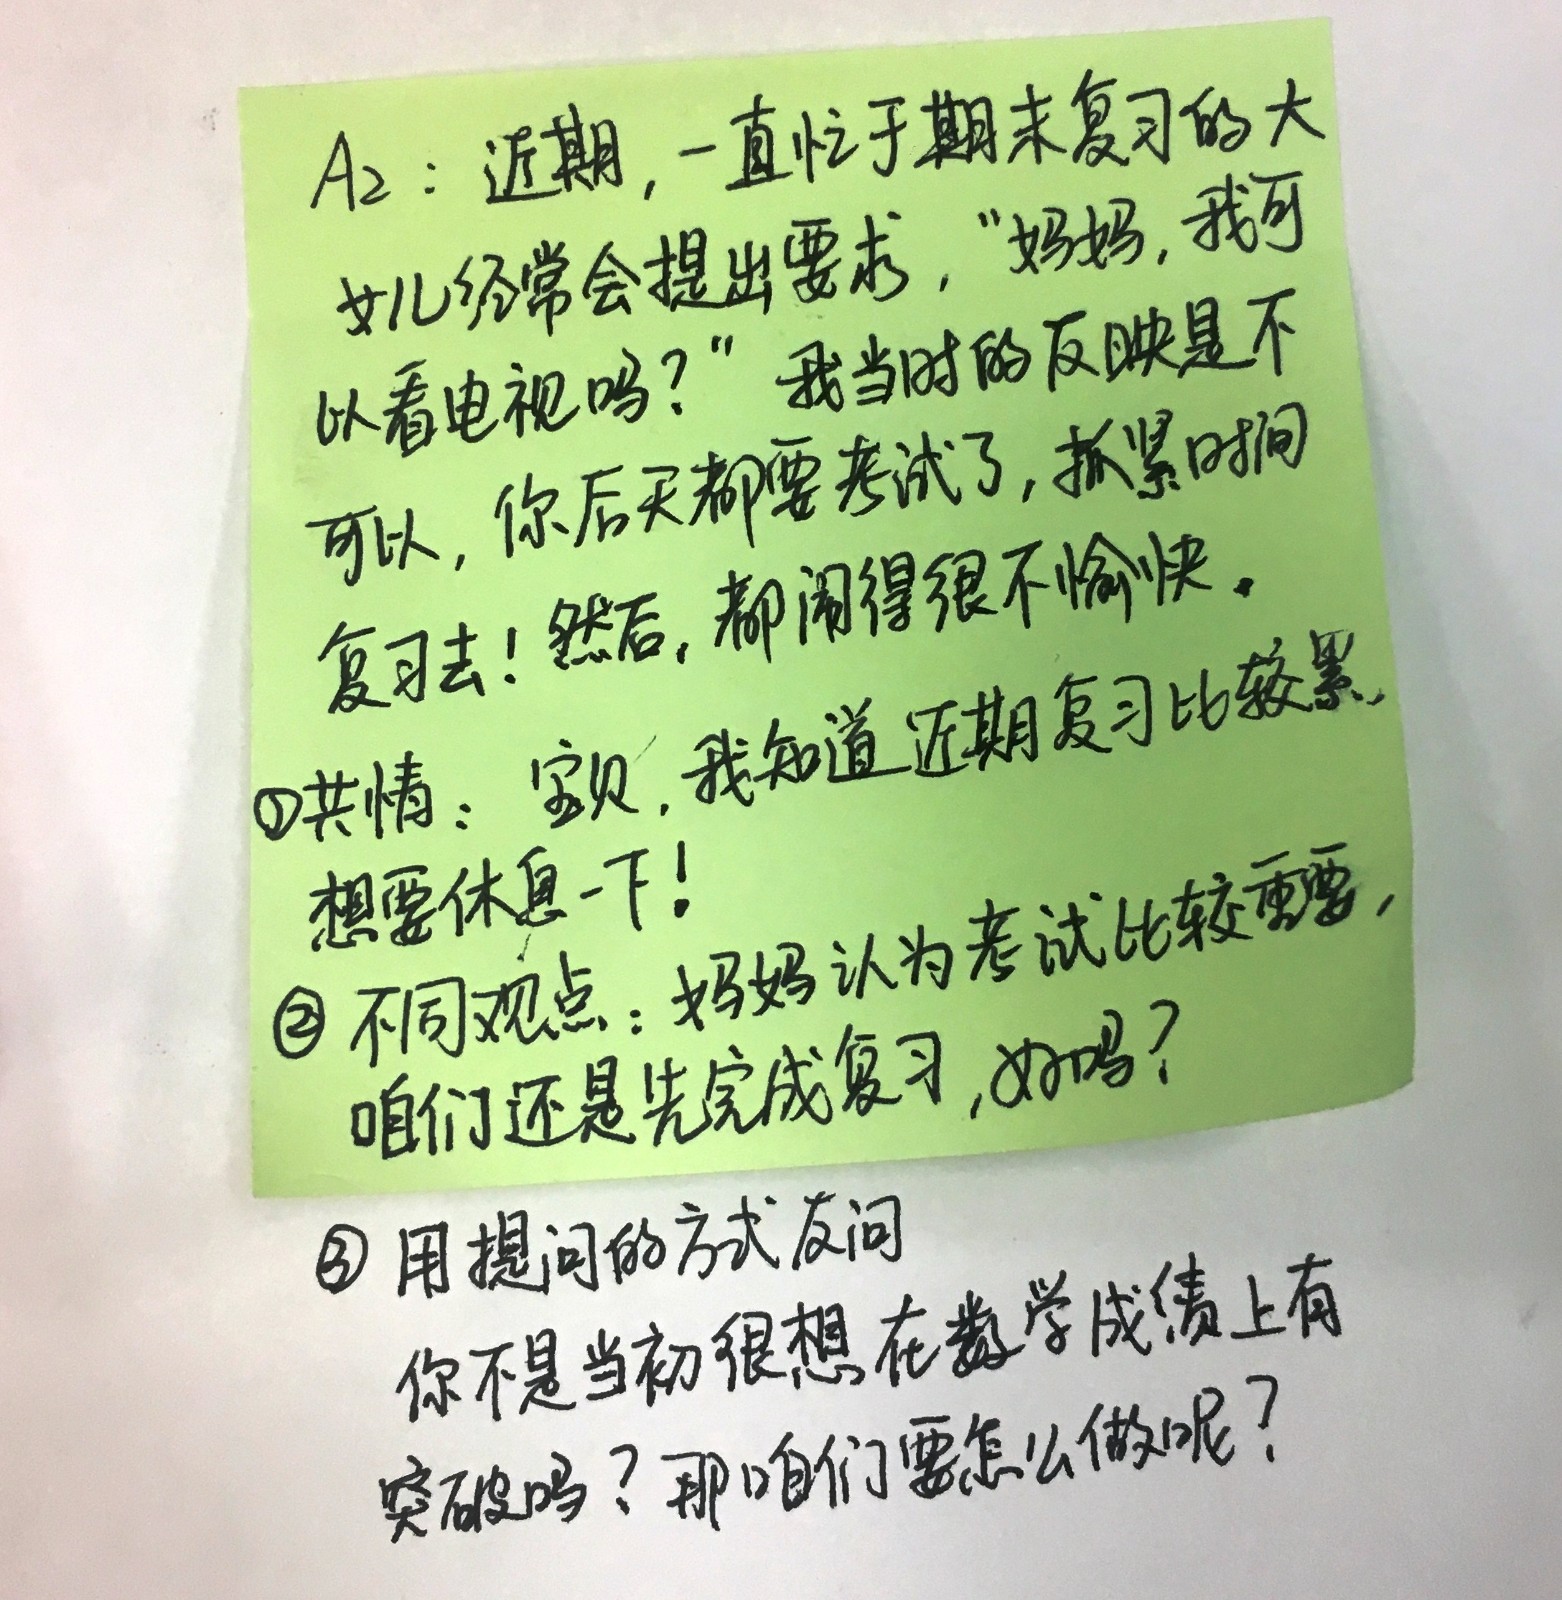 A2：近期，一直忙于期末复习的大
女儿经常会提出要求，“妈妈，我可
以看电视吗？”我当时的反映是不
可以，你后天都要考试了，抓紧时间
复习去！然后，都闹得很不愉快．
①共情：宝贝，我知道近期复习比较累，
想要休息一下！
②不同观点：妈妈认为考试比较重要，
咱们还是先完成复习，好吗？
③用提问的方式反问
你不是当初很想在数学成绩上有
突破吗？那咱们要怎么做呢？